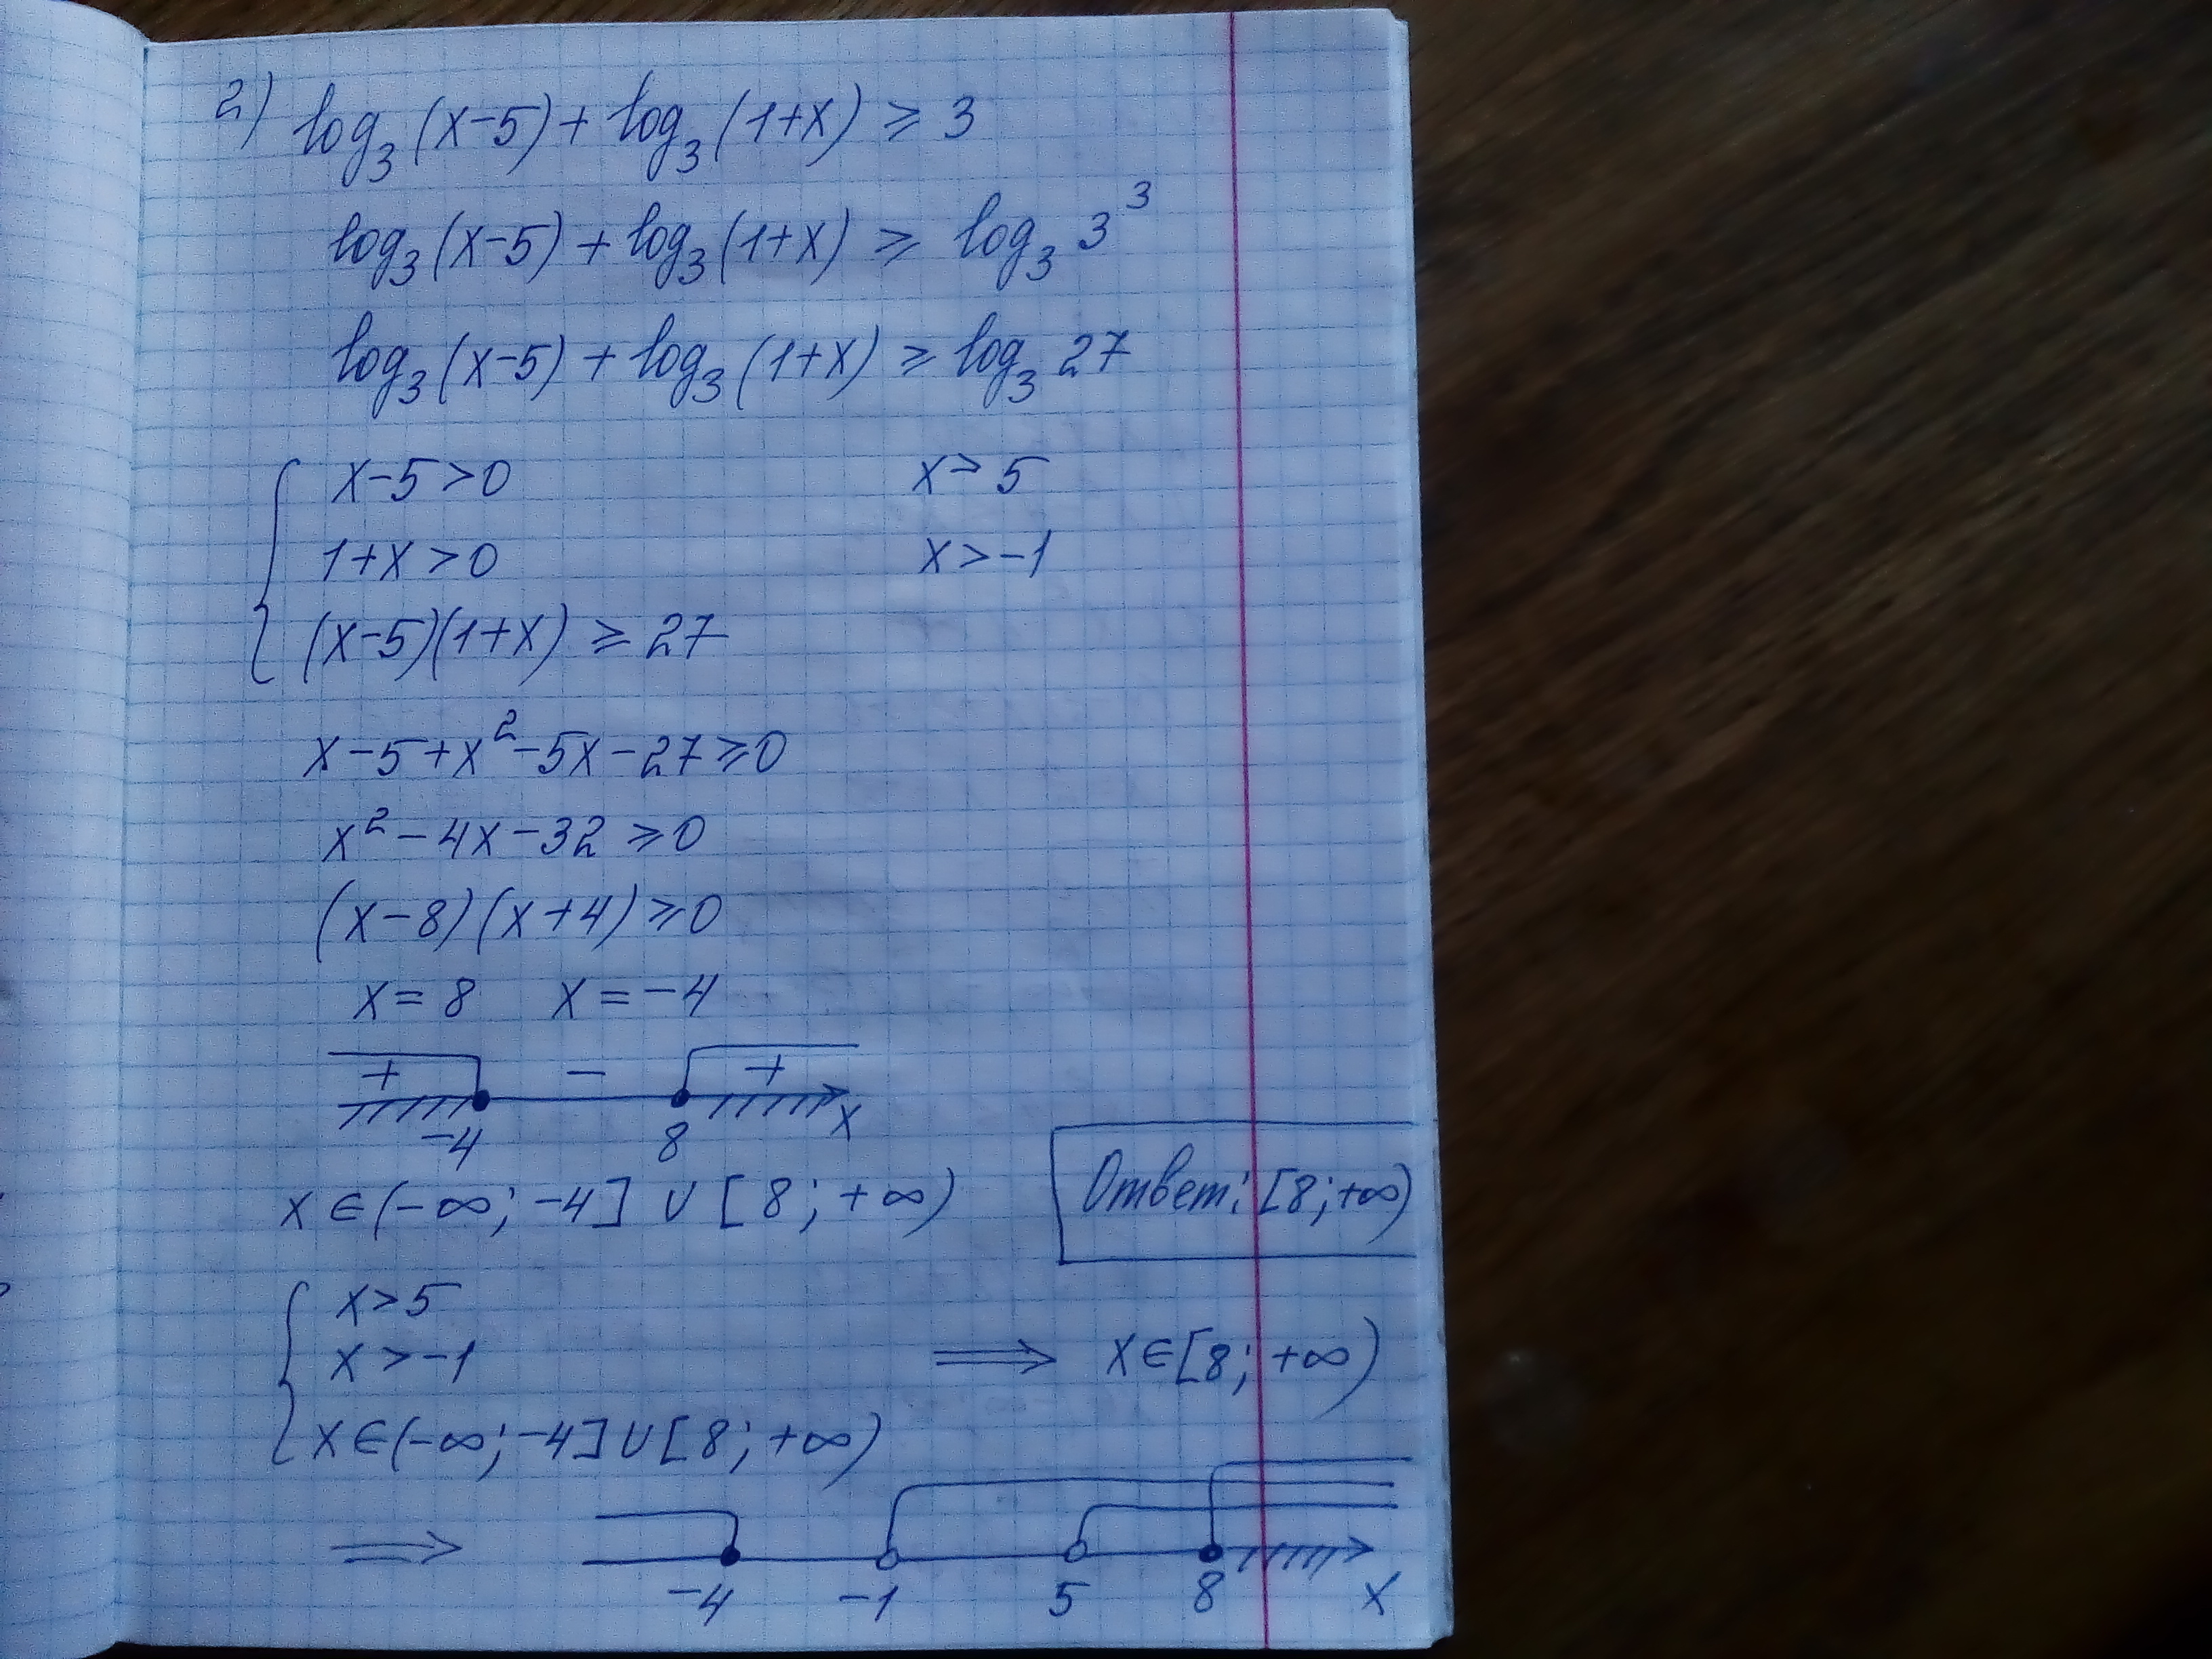 2) log₃(x-5) + log₃(1+x) ≥ 3
log₃(x-5) + log₃(1+x) ≥ log₃ 3³
log₃(x-5) + log₃(1+x) ≥ log₃ 27
x-5>0 x>5
1+x>0 x>-1
(x-5)(1+x) ≥ 27
x-5+x²-5x-27≥0
x²-4x-32≥0
(x-8)(x+4)≥0
x=8 x=-4
+ - +
-4 8 x
x∈(-∞; -4] ∪ [8; +∞)
Ответ: [8;+∞)
x>5
x>-1
⟹ x∈[8; +∞)
x∈(-∞; -4]∪[8; +∞)
⟹
-4 -1 5 8 x